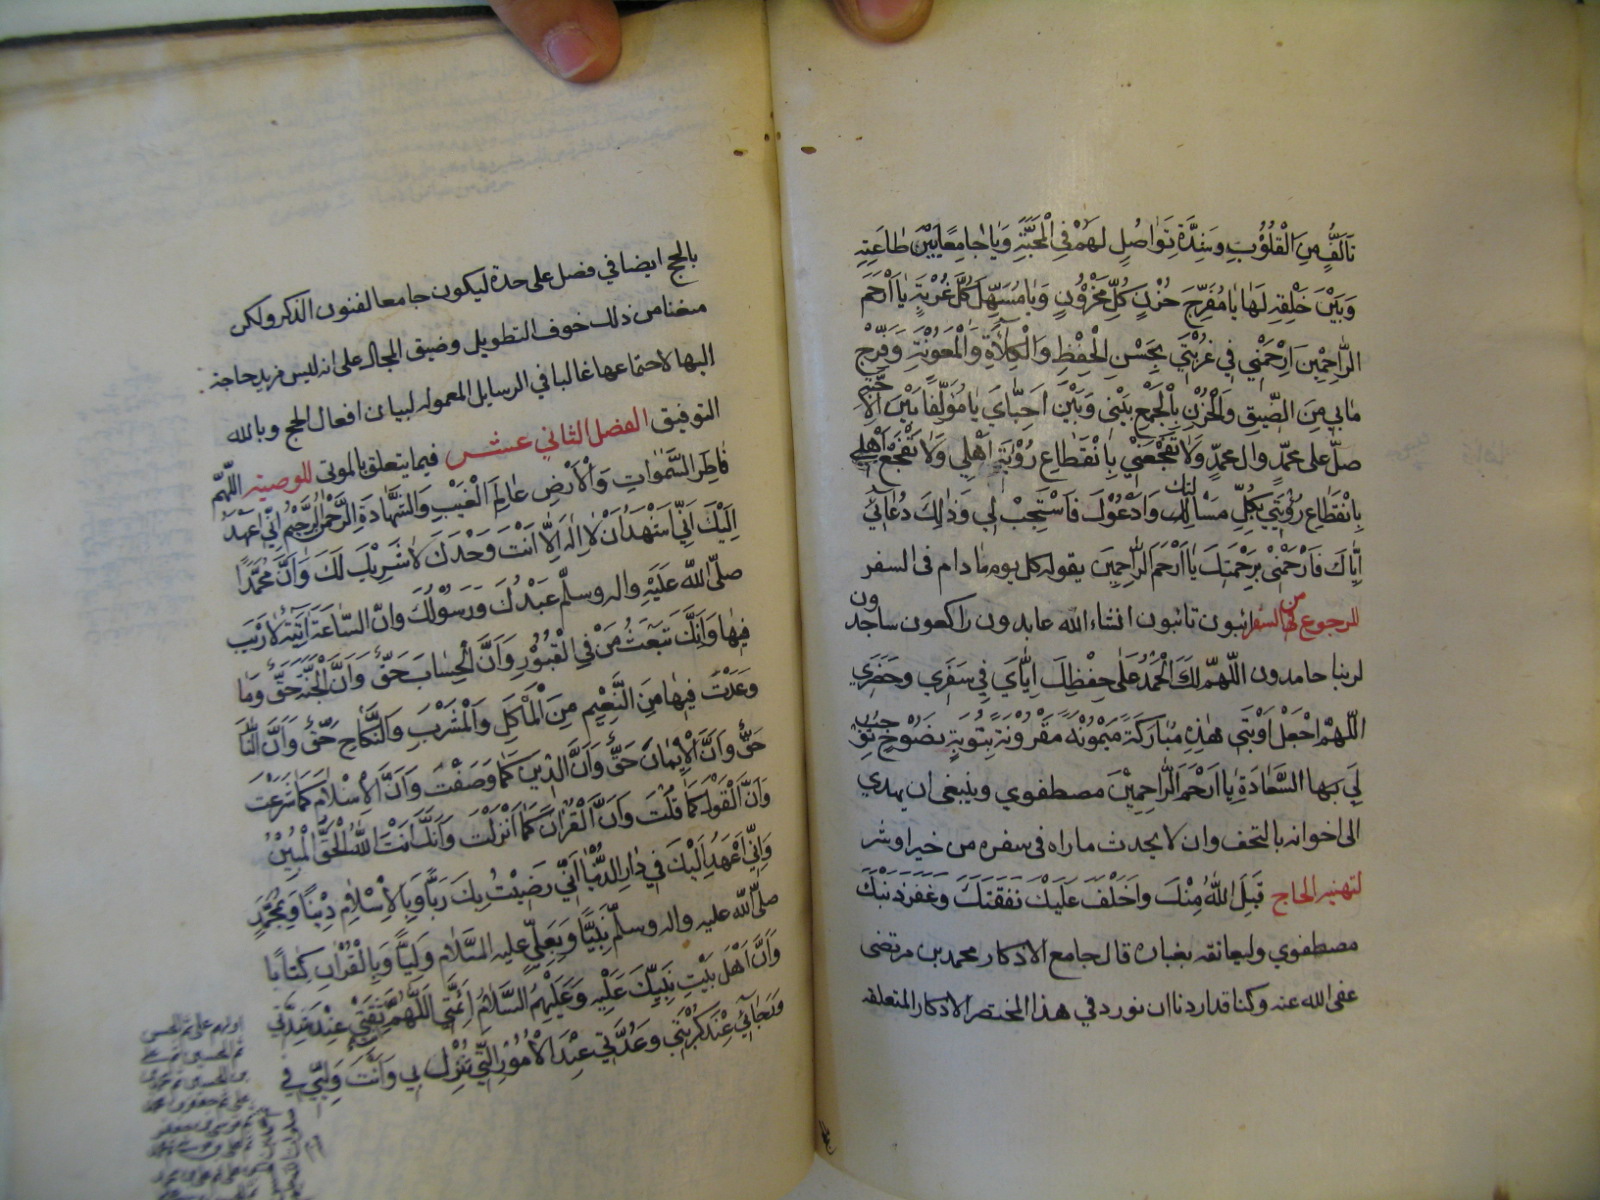 تَأَلُّفٍ مِنَ الْقُلُوبِ وَشِدَّةِ تَوَاصُلٍ لَهُمْ فِي الْمَحَبَّةِ وَيَا جَامِعًا بَيْنَ طَاعَتِهِ
وَبَيْنَ خَلْقِهِ لَهَا يَا مُفَرِّجَ حُزْنِ كُلِّ مَحْزُونٍ وَيَا مُسَهِّلَ كُلِّ غُرْبَةٍ يَا اَرْحَمَ
الرَّاحِمِينَ اِرْحَمْنِي فِي غُرْبَتِي بِحُسْنِ الْحِفْظِ وَالْكِلَاءَةِ وَالْمَعُونَةِ وَفَرِّجْ
مَا بِي مِنَ الضِّيقِ وَالْحُزْنِ بِالْجَمْعِ بَيْنِي وَبَيْنَ اَحِبَّايَ يَا مُؤَلِّفًا بَيْنَ الْاَحِبَّةِ
صَلِّ عَلى مُحَمَّدٍ وَالِ مُحَمَّدٍ وَلَا تَفْجَعْنِي بِانْقِطَاعِ رُؤْيَةِ اَهْلِي وَلَا تَفْجَعْ اَهْلِي
بِانْقِطَاعِ رُؤْيَتِي بِكُلِّ مَسَائِلِكَ وَاَدْعُوكَ فَاسْتَجِبْ لِي وَذٰلِكَ دُعَائِي
اِيَّاكَ فَارْحَمْنِي بِرَحْمَتِكَ يَا اَرْحَمَ الرَّاحِمِينَ يقوله كل يوم ما دام فى السفر
للرجوع من السفر ائبون تائبون انشاء الله عابدون راكعون ساجدون
لربنا حامدون اللّهمّ لَكَ الْحَمْدُ عَلى حِفْظِكَ اِيَّايَ فِي سَفَرِي وَحَضَرِي
اللّهُمَّ اجْعَلْ اَوْبَتِي هٰذِهِ مُبَارَكَةً مَيْمُونَةً مَقْرُونَةً بِتَوْبَةٍ نَصُوحٍ تُوجِبُ
لِي بِهَا السَّعَادَةَ يَا اَرْحَمَ الرَّاحِمِينَ مصطفوي وينبغى ان يهدي
الى اخوانه بالتحف وان لا يحدث ما راه فى سفره من خير او شر
لتهنية الحاج قَبِلَ اللّٰهُ مِنْكَ وَاَخْلَفَ عَلَيْكَ نَفَقَتَكَ وَغَفَرَ ذَنْبَكَ
مصطفوي وليعانقه بغباره قال جامع الاذكار محمد بن مرتضى
عفى الله عنه وكنا قد اردنا ان نورد في هذا المختصر الاذكار المتعلقه
بالحج ايضا في فصل على حدة ليكون جامعا لفنون الذكر ولكن
منعنا من ذلك خوف التطويل وضيق المجال على انه ليس مزيد حاجة
اليها لاجتماعها غالبا في الرسايل المعموله لبيان افعال الحج وبالله
التوفيق الفصل الثاني عشر فيما يتعلق بالموتى للوصية اللّهمّ
فَاطِرَ السَّمٰوَاتِ وَالْاَرْضِ عَالِمَ الْغَيْبِ وَالشَّهَادَةِ الرَّحْمٰنَ الرَّحِيمَ اِنِّي اَعْهَدُ
اِلَيْكَ اَنِّي اَشْهَدُ اَنْ لَا اِلٰهَ اِلَّا اَنْتَ وَحْدَكَ لَا شَرِيكَ لَكَ وَاَنَّ مُحَمَّدًا
صَلّى اللّٰه عَلَيْهِ واله وسلّم عَبْدُكَ وَرَسُولُكَ وَانَّ السَّاعَةَ اٰتِيَةٌ لَا رَيْبَ
فِيهَا وَاَنَّكَ تَبْعَثُ مَنْ فِي الْقُبُورِ وَاَنَّ الْحِسَابَ حَقٌّ وَاَنَّ الْجَنَّةَ حَقٌّ وَمَا
وَعَدْتَ فِيهَا مِنَ النَّعِيمِ مِنَ الْمَأْكَلِ وَالْمَشْرَبِ وَالنِّكَاحِ حَقٌّ وَاَنَّ النَّارَ
حَقٌّ وَاَنَّ الْاِيمَانَ حَقٌّ وَاَنَّ الدِّينَ كَمَا وَصَفْتَ وَاَنَّ الْاِسْلَامَ كَمَا شَرَعْتَ
وَاَنَّ الْقَوْلَ كَمَا قُلْتَ وَاَنَّ الْقُرْاٰنَ كَمَا اَنْزَلْتَ وَاَنَّكَ اَنْتَ اللّٰهُ الْحَقُّ الْمُبِينُ
وَاِنِّي اَعْهَدُ اِلَيْكَ فِي دَارِ الدُّنْيَا اَنِّي رَضِيتُ بِكَ رَبًّا وَبِالْاِسْلَامِ دِينًا وَبِمُحَمَّدٍ
صلّى اللّٰه عليه واله وسلّم نَبِيًّا وَبِعَلِيٍّ عليه السَّلَام وَلِيًّا وَبِالْقُرْاٰنِ كِتَابًا
وَاَنَّ اَهْلَ بَيْتِ نَبِيِّكَ عَلَيْهِ وَعَلَيْهِمُ السَّلَامُ اَئِمَّتِي اَللّٰهُمَّ اَنْتَ ثِقَتِي عِنْدَ شِدَّتِي
وَرَجَائِي عِنْدَ كُرْبَتِي وَعُدَّتِي عِنْدَ الْاُمُورِ الَّتِي تَنْزِلُ بِي وَاَنْتَ وَلِيِّي فِي